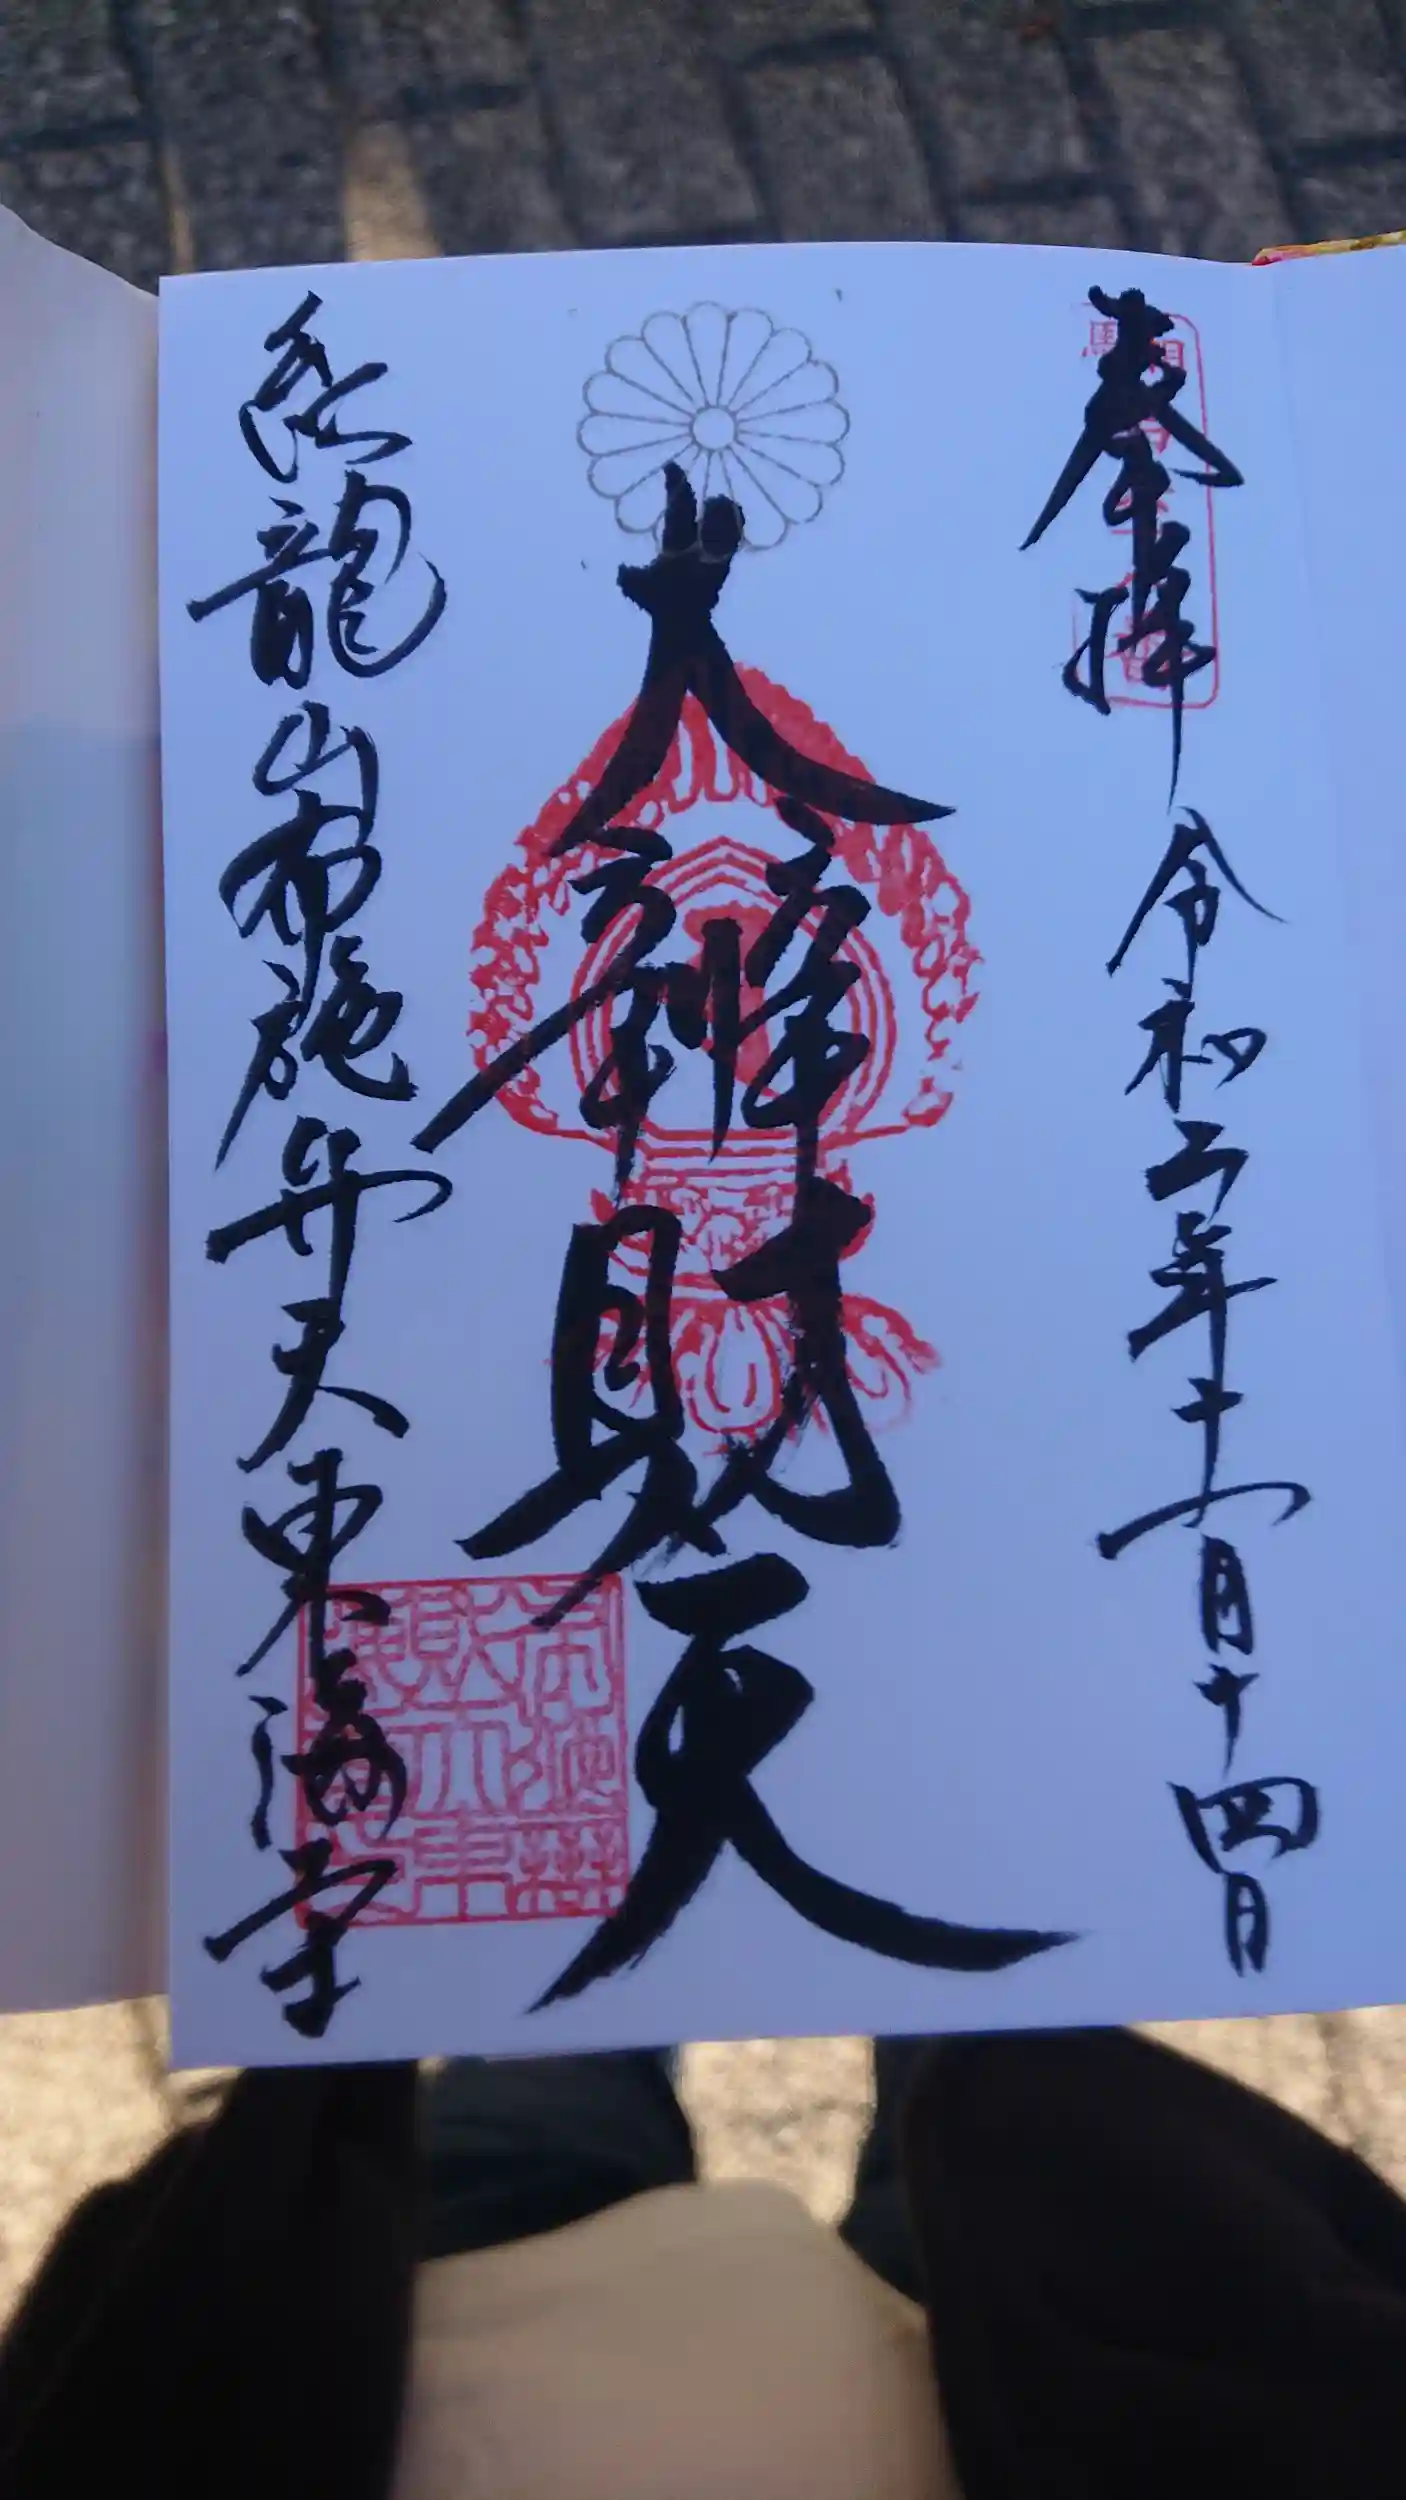 奉拝 令和二年十一月十四日
大辨財天
紅龍山布施弁天東海寺